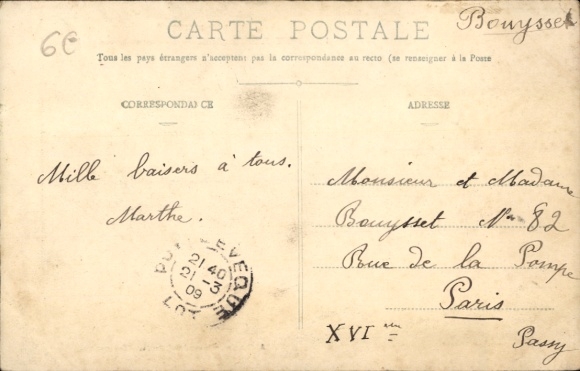 6€
CARTE POSTALE
Bouysset
Tous les pays étrangers n'acceptent pas la correspondance au recto (se renseigner à la Poste
CORRESPONDANCE
ADRESSE
Mille baisers à tous.
Marthe.
Monsieur et Madame
Bouysset N° 82
Rue de la Pompe
Paris
XVI ème
Passy
PUY-L'EVEQUE
21 40
21 - 3
09
LOT